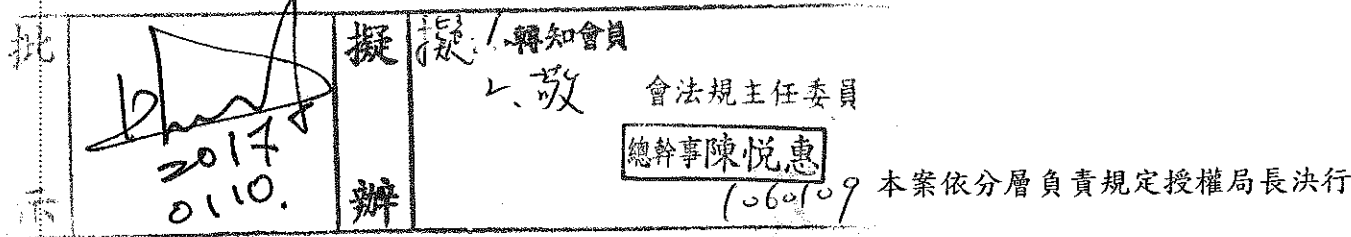 批示
2017
0110.
擬辦
擬：1.轉知會員
2、敬 會法規主任委員
總幹事陳悅惠
1060109
本案依分層負責規定授權局長決行